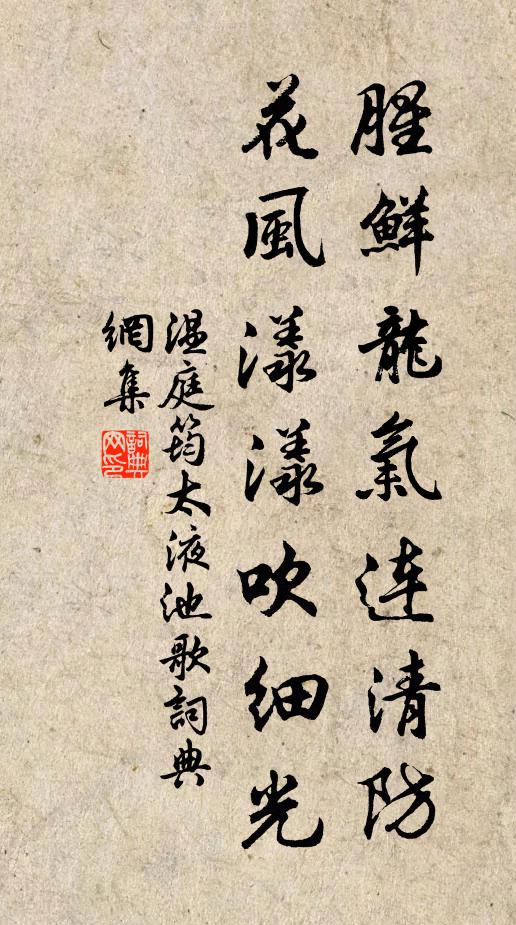 腥鮮龍氣连清防
花風漾漾吹細光
温庭筠太液池歌詞典
網集
詞典网印